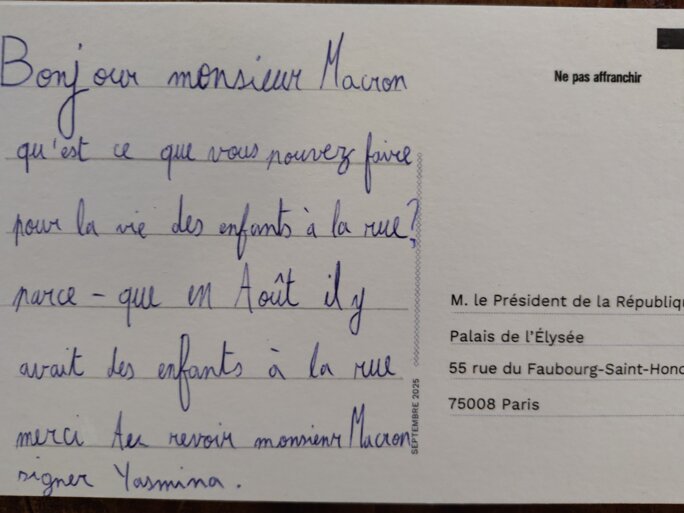 Bonjour monsieur Macron
qu'est ce que vous pouvez faire
pour la vie des enfants à la rue?
parce - que en Août il y
avait des enfants à la rue
merci Au revoir monsieur Macron
signer Yasmina.
Ne pas affranchir
M. le Président de la Républiqu
Palais de l'Élysée
55 rue du Faubourg-Saint-Hono
75008 Paris
SEPTEMBRE 2025